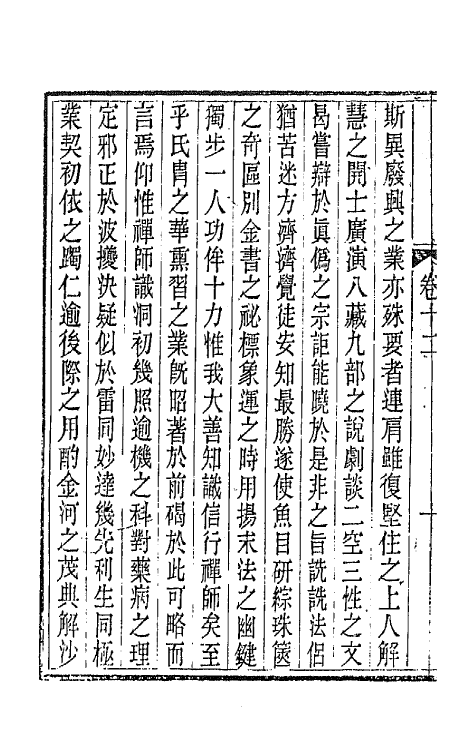 卷十二
十
斯異廢興之業亦殊要者連肩雖復堅住之上人解
慧之開士廣演八藏九部之說劇談二空三性之文
曷嘗辯於眞僞之宗詎能曉於是非之旨詵詵法侶
猶苦迷方濟濟覺徒安知最勝遂使魚目研綜珠篋
之奇區別金書之祕標象運之時用揚末法之幽鍵
獨步一人功侔十力惟我大善知識信行禪師矣至
乎氏胄之華熏習之業旣昭著於前碣於此可略而
言焉仰惟禪師識洞初幾照逾機之科對藥病之理
定邪正於波㸕決疑似於雷同妙達幾先利生同極
業契初依之躅仁逾後際之用酌金河之茂典解沙